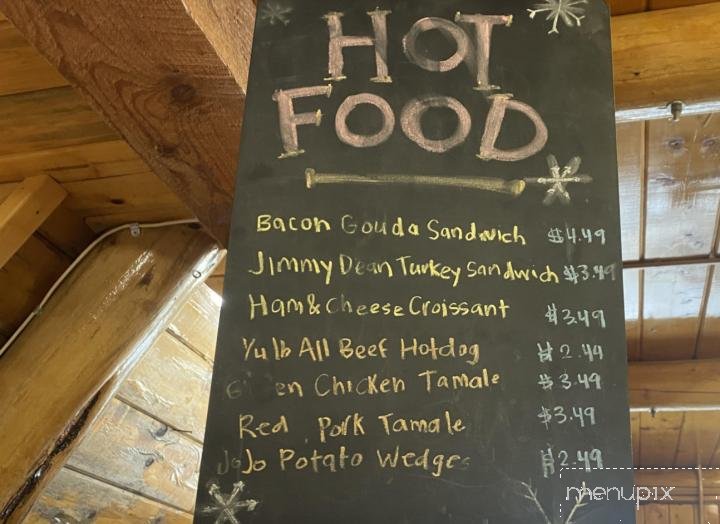 HOT
FOOD
Bacon Gouda Sandwich $4.49
Jimmy Dean Turkey Sandwich $3.49
Ham & Cheese Croissant $3.49
1/4 lb All Beef Hotdog $2.49
Chicken Tamale $3.49
Red Pork Tamale $3.49
JoJo Potato Wedges $2.49
menupix